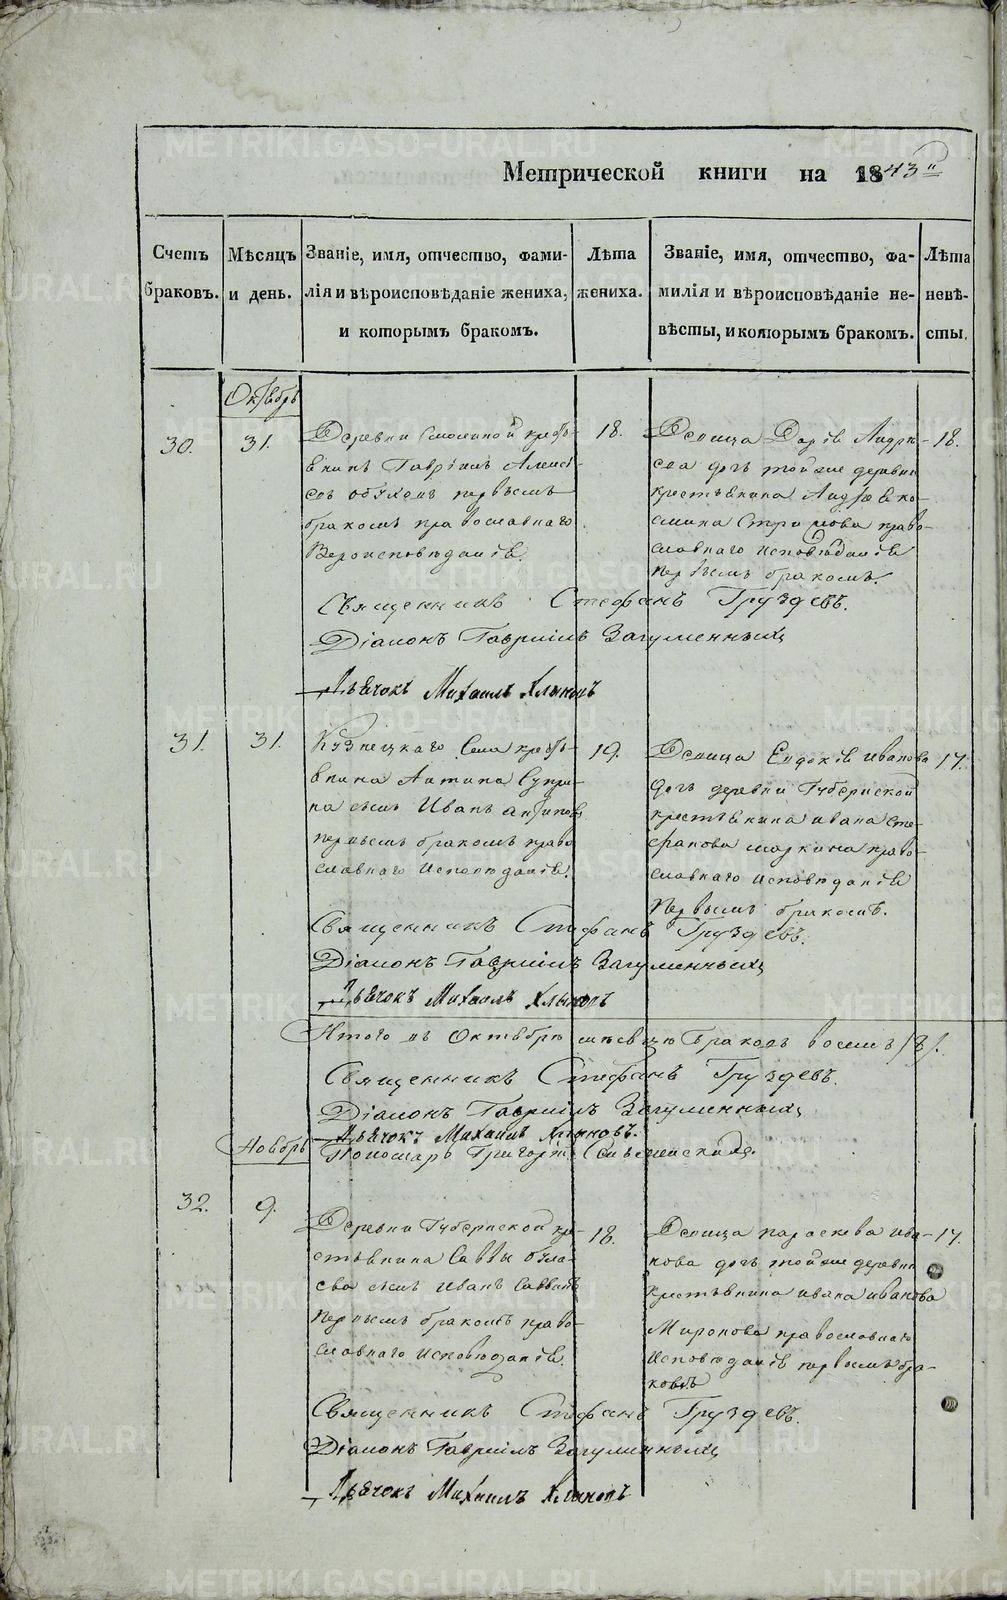 Метрической книги на 1843й
Счетъ браковъ.
Мѣсяцъ и день.
Званіе, имя, отчество, фами-
лія и вѣроисповѣданіе жениха,
и которымъ бракомъ.
Лѣта
жениха.
Званіе, имя, отчество, фа-
милія и вѣроисповѣданіе не-
вѣсты, и которымъ бракомъ.
Лѣта
невѣ-
сты.
Октябрь
30.
31.
Деревни Смолиной кресть-
янинъ Гавріилъ Алексі-
евъ первымъ
бракомъ православнаго
Вероисповѣданія.
18.
Девица Дарія Андре-
ева дочь той же деревни
крестьянина Андрея Ко-
смина право-
славнаго исповѣданія
первымъ бракомъ.
18.
Священникъ Стефанъ Груздевъ.
Діаконъ Гавріилъ Загуменныхъ
Дьячокъ Михаилъ Хлыновъ
31.
31.
Кузнецкаго Села кресть-
янина Антипа
сынъ Иванъ Антиповъ
первымъ бракомъ право
славнаго исповѣданія.
19.
Девица Евдокія Иванова
дочь деревни Губернской
крестьянина Ивана Сте-
фанова Маркина право-
славнаго исповѣданія
первымъ бракомъ.
17.
Священникъ Стефанъ Груздевъ.
Діаконъ Гавріилъ Загуменныхъ
Дьячокъ Михаилъ Хлыновъ
Итого въ Октябрѣ месяцѣ браковъ восемь /8/.
Священникъ Стефанъ Груздевъ.
Діаконъ Гавріилъ Загуменныхъ
Дьячокъ Михаилъ Хлыновъ.
Пономарь Григорій
Ноябрь
32.
9.
Деревни Губернской кре-
стьянина Саввы
сынъ Иванъ Саввинъ
первымъ бракомъ право-
славнаго исповѣданія.
18.
Девица Параскева Ива-
нова дочь той же деревни
крестьянина Ивана Иванова
Миронова православнаго
исповѣданія первымъ бра-
комъ
17.
Священникъ Стефанъ Груздевъ.
Діаконъ Гавріилъ Загуменныхъ
Дьячокъ Михаилъ Хлыновъ
METRIKI.GASO-URAL.RU